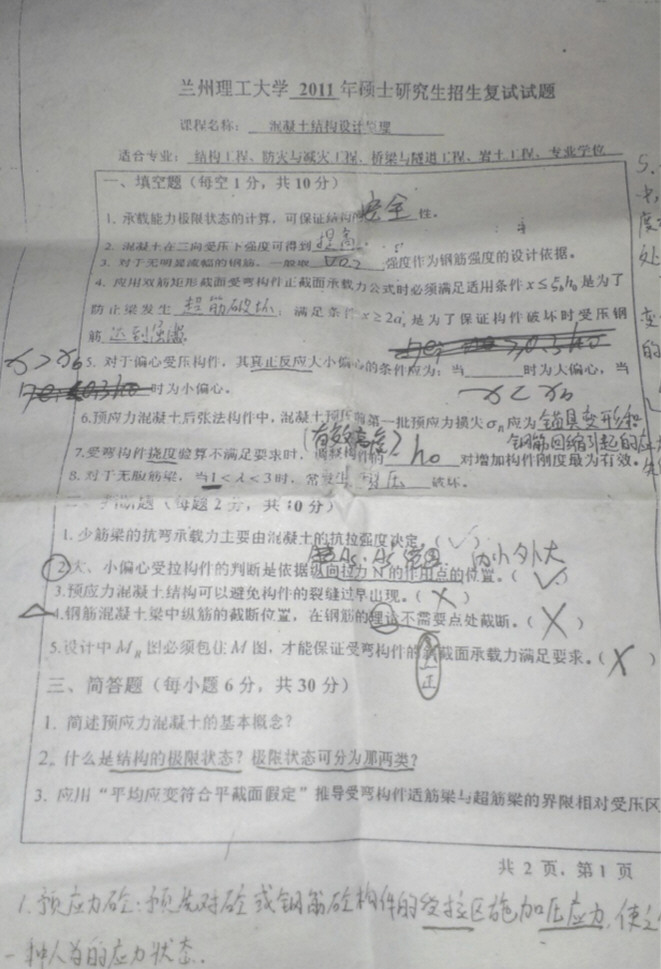 兰州理工大学 2011 年硕士研究生招生复试试题
课程名称： 混凝土结构设计原理
适合专业： 结构工程、防灾与减灾工程、桥梁与隧道工程、岩土工程、专业学位
一、填空题（每空 1 分，共 10 分）
1. 承载能力极限状态的计算，可保证结构的 安全 性。
2. 混凝土在二向受压下强度可得到 提高 。
3. 对于无明显流幅的钢筋，一般取 σ0.2 强度作为钢筋强度的设计依据。
4. 应用双筋矩形截面受弯构件正截面承载力公式时必须满足适用条件 x≤ξbh0 是为了
防止梁发生 超筋破坏 ；满足条件 x≥2a's 是为了保证构件破坏时受压钢
筋 达到强度 。
5. 对于偏心受压构件，其真正反应大小偏心的条件应为：当 时为大偏心，当
x>xb 时为小偏心。 x<xb
6.预应力混凝土后张法构件中，混凝土预压前第一批预应力损失 应为 锚具变形和
(有效高度) 钢筋回缩引起的
7.受弯构件挠度验算不满足要求时，调整构件的 h0 对增加构件刚度最为有效。
8. 对于无腹筋梁，当1<λ<3时，常发生 剪压 破坏。
二、判断题（每题 2 分，共 10 分）
1. 少筋梁的抗弯承载力主要由混凝土的抗拉强度决定。（ √ ）
As、As'范围 内小外大
2.大、小偏心受拉构件的判断是依据纵向拉力 N 的作用点的位置。（ √ ）
3.预应力混凝土结构可以避免构件的裂缝过早出现。（ X ）
△4.钢筋混凝土梁中纵筋的截断位置，在钢筋的理论不需要点处截断。（ X ）
5.设计中 MR 图必须包住 M 图，才能保证受弯构件的斜截面承载力满足要求。（ X ）
正
三、简答题（每小题 6 分，共 30 分）
1. 简述预应力混凝土的基本概念？
2. 什么是结构的极限状态？极限状态可分为那两类？
3. 应用“平均应变符合平截面假定”推导受弯构件适筋梁与超筋梁的界限相对受压区
共 2 页，第 1 页
1.预应力砼:预先对砼或钢筋砼构件的受拉区施加压应力,使之
一种人为的应力状态.